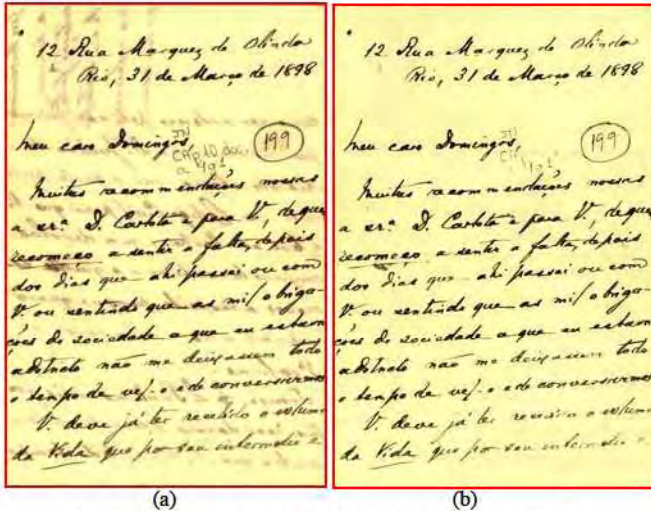 12 Rua Marquez de Olinda
Rio, 31 de Março de 1898
Meu caro Domingos,
199
CP 10 doc
191
Muitas recommendações nossas
a sr.ª D. Carlota e para V., de quem
recomeço a sentir a falta, depois
dos dias que ahi passei ou com
V. ou sentindo que as mil obriga-
ções de sociedade a que eu estava
não me deixassem todo
o tempo de vel-o e de conversarmos
V. deve já ter recebido o volume
da Vida que por seu intermedio e
(a)
12 Rua Marquez de Olinda
Rio, 31 de Março de 1898
Meu caro Domingos,
199
191
Muitas recommendações nossas
a sr.ª D. Carlota e para V., de quem
recomeço a sentir a falta, depois
dos dias que ahi passei ou com
V. ou sentindo que as mil obriga-
ções de sociedade a que eu estava
não me deixassem todo
o tempo de vel-o e de conversarmos
V. deve já ter recebido o volume
da Vida que por seu intermedio e
(b)